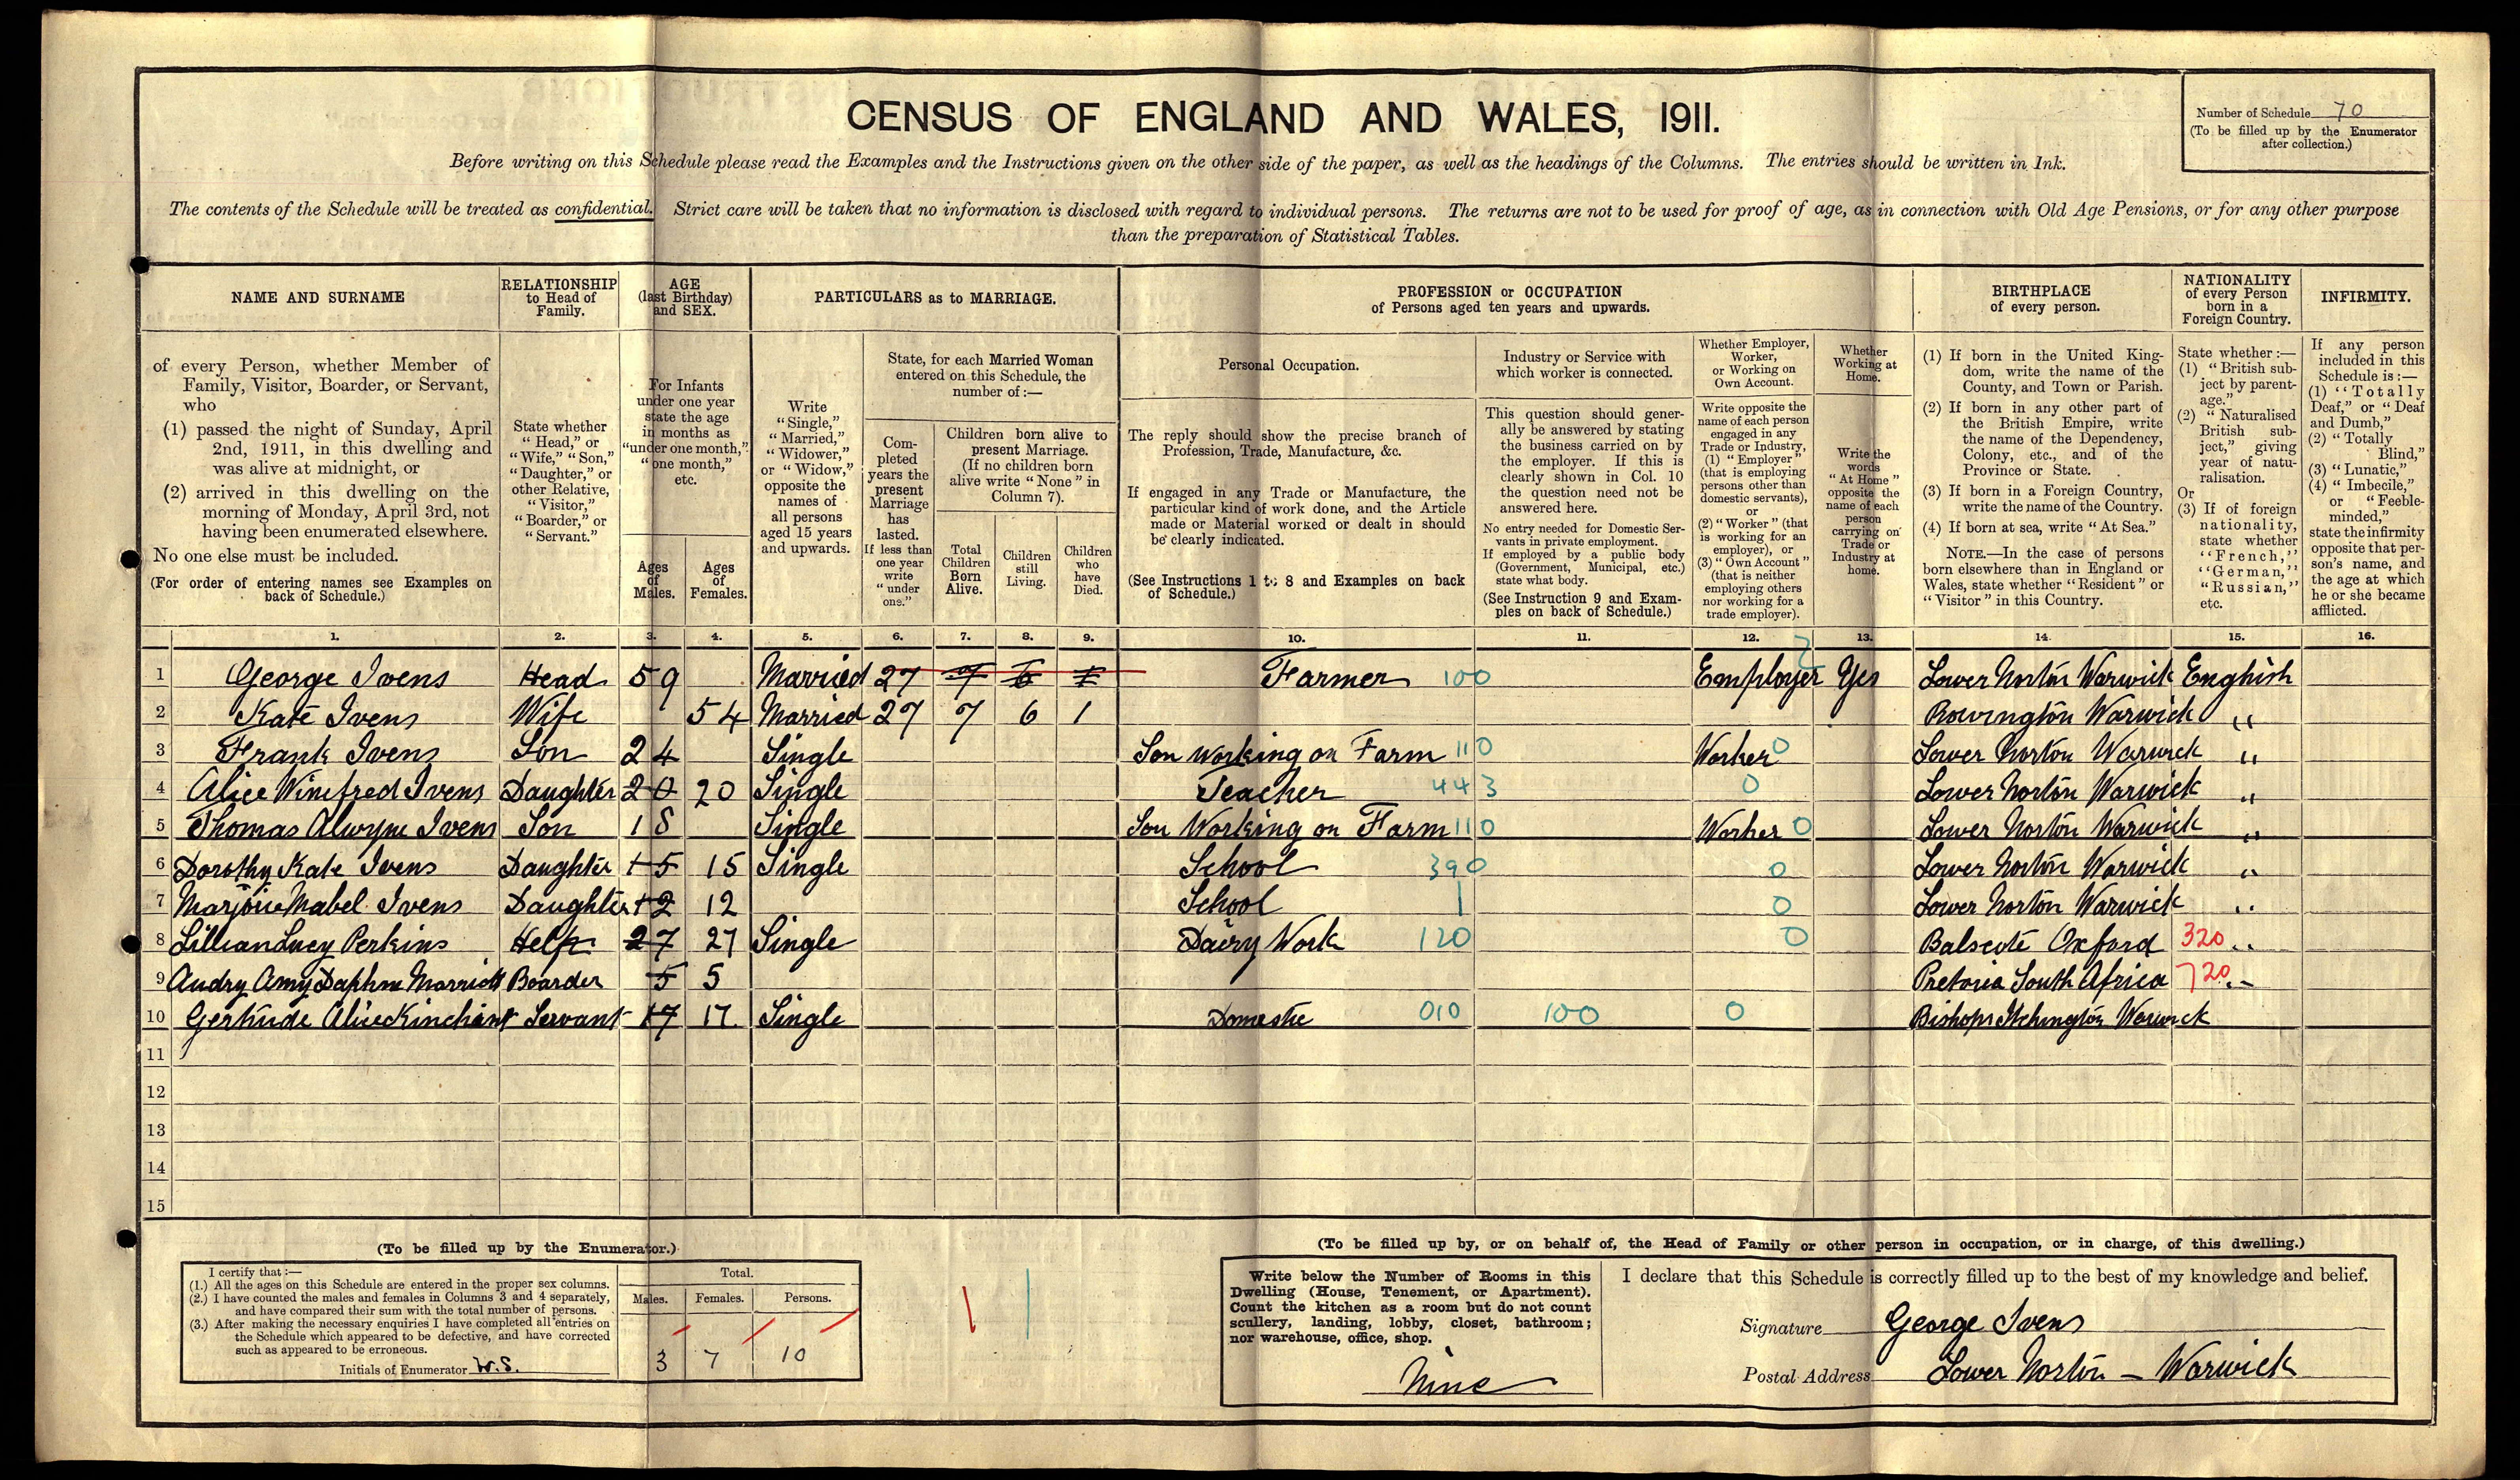 CENSUS OF ENGLAND AND WALES, 1911.
Number of Schedule 70
(To be filled up by the Enumerator
after collection.)
Before writing on this Schedule please read the Examples and the Instructions given on the other side of the paper, as well as the headings of the Columns. The entries should be written in Ink.
The contents of the Schedule will be treated as confidential. Strict care will be taken that no information is disclosed with regard to individual persons. The returns are not to be used for proof of age, as in connection with Old Age Pensions, or for any other purpose
than the preparation of Statistical Tables.
NAME AND SURNAME
of every Person, whether Member of
Family, Visitor, Boarder, or Servant,
who
(1) passed the night of Sunday, April
2nd, 1911, in this dwelling and
was alive at midnight, or
(2) arrived in this dwelling on the
morning of Monday, April 3rd, not
having been enumerated elsewhere.
No one else must be included.
(For order of entering names see Examples on
back of Schedule.)
RELATIONSHIP
to Head of
Family.
State whether
"Head," or
"Wife," "Son,"
"Daughter," or
other Relative,
"Visitor,"
"Boarder," or
"Servant."
AGE
(last Birthday)
and SEX.
For Infants
under one year
state the age
in months as
"under one month,"
"one month,"
etc.
Ages
of
Males.
Ages
of
Females.
PARTICULARS as to MARRIAGE.
Write
"Single,"
"Married,"
"Widower,"
or "Widow,"
opposite the
names of
all persons
aged 15 years
and upwards.
State, for each Married Woman
entered on this Schedule, the
number of:—
Com-
pleted
years the
present
Marriage
has
lasted.
If less than
one year
write
"under
one."
Children born alive to
present Marriage.
(If no children born
alive write "None" in
Column 7).
Total
Children
Born
Alive.
Children
still
Living.
Children
who
have
Died.
PROFESSION or OCCUPATION
of Persons aged ten years and upwards.
Personal Occupation.
The reply should show the precise branch of
Profession, Trade, Manufacture, &c.
If engaged in any Trade or Manufacture, the
particular kind of work done, and the Article
made or Material worked or dealt in should
be clearly indicated.
(See Instructions 1 to 8 and Examples on back
of Schedule.)
Industry or Service with
which worker is connected.
This question should gener-
ally be answered by stating
the business carried on by
the employer. If this is
clearly shown in Col. 10
the question need not be
answered here.
No entry needed for Domestic Ser-
vants in private employment.
If employed by a public body
(Government, Municipal, etc.)
state what body.
(See Instruction 9 and Exam-
ples on back of Schedule.)
Whether Employer,
Worker,
or Working on
Own Account.
Write opposite the
name of each person
engaged in any
Trade or Industry,
(1) "Employer"
(that is employing
persons other than
domestic servants),
or
(2) "Worker" (that
is working for an
employer), or
(3) "Own Account"
(that is neither
employing others
nor working for a
trade employer).
Whether
Working at
Home.
Write the
words
"At Home"
opposite the
name of each
person
carrying on
Trade or
Industry at
home.
BIRTHPLACE
of every person.
(1) If born in the United King-
dom, write the name of the
County, and Town or Parish.
(2) If born in any other part of
the British Empire, write
the name of the Dependency,
Colony, etc., and of the
Province or State.
(3) If born in a Foreign Country,
write the name of the Country.
(4) If born at sea, write "At Sea."
NOTE.—In the case of persons
born elsewhere than in England or
Wales, state whether "Resident" or
"Visitor" in this Country.
NATIONALITY
of every Person
born in a
Foreign Country.
State whether:—
(1) "British sub-
ject by parent-
age."
(2) "Naturalised
British sub-
ject," giving
year of natu-
ralisation.
Or
(3) If of foreign
nationality,
state whether
"French,"
"German,"
"Russian,"
etc.
INFIRMITY.
If any person
included in this
Schedule is:—
(1) "Totally
Deaf," or "Deaf
and Dumb,"
(2) "Totally
Blind,"
(3) "Lunatic,"
(4) "Imbecile,"
or "Feeble-
minded,"
state the infirmity
opposite that per-
son's name, and
the age at which
he or she became
afflicted.
1. 2. 3. 4. 5. 6. 7. 8. 9. 10. 11. 12. 13. 14. 15. 16.
1 George Ivens Head 59 Married 27 7 6 1 Farmer 100 Employer Yes Lower Norton Warwick English
2 Kate Ivens Wife 54 Married 27 7 6 1 Rowington Warwick "
3 Frank Ivens Son 24 Single Son working on Farm 110 Worker 0 Lower Norton Warwick "
4 Alice Winifred Ivens Daughter 20 20 Single Teacher 443 0 Lower Norton Warwick "
5 Thomas Alwyne Ivens Son 18 Single Son Working on Farm 110 Worker 0 Lower Norton Warwick "
6 Dorothy Kate Ivens Daughter 15 15 Single School 390 0 Lower Norton Warwick "
7 Marjorie Mabel Ivens Daughter 12 12 School | 0 Lower Norton Warwick "
8 Lillian Lucy Perkins Help 27 27 Single Dairy Work 120 0 Balscote Oxford 320 "
9 Audry Amy Daphne Marriott Boarder 5 5 Pretoria South Africa 720 "
10 Gertrude Alice Kinchant Servant 17 17 Single Domestic 010 100 0 Bishops Itchington Warwick
11
12
13
14
15
(To be filled up by the Enumerator.)
I certify that:—
(1.) All the ages on this Schedule are entered in the proper sex columns.
(2.) I have counted the males and females in Columns 3 and 4 separately,
and have compared their sum with the total number of persons.
(3.) After making the necessary enquiries I have completed all entries on
the Schedule which appeared to be defective, and have corrected
such as appeared to be erroneous.
Initials of Enumerator W.S.
Total.
Males. Females. Persons.
3 7 10
(To be filled up by, or on behalf of, the Head of Family or other person in occupation, or in charge, of this dwelling.)
Write below the Number of Rooms in this
Dwelling (House, Tenement, or Apartment).
Count the kitchen as a room but do not count
scullery, landing, lobby, closet, bathroom;
nor warehouse, office, shop.
Nine
I declare that this Schedule is correctly filled up to the best of my knowledge and belief.
Signature George Ivens
Postal Address Lower Norton — Warwick